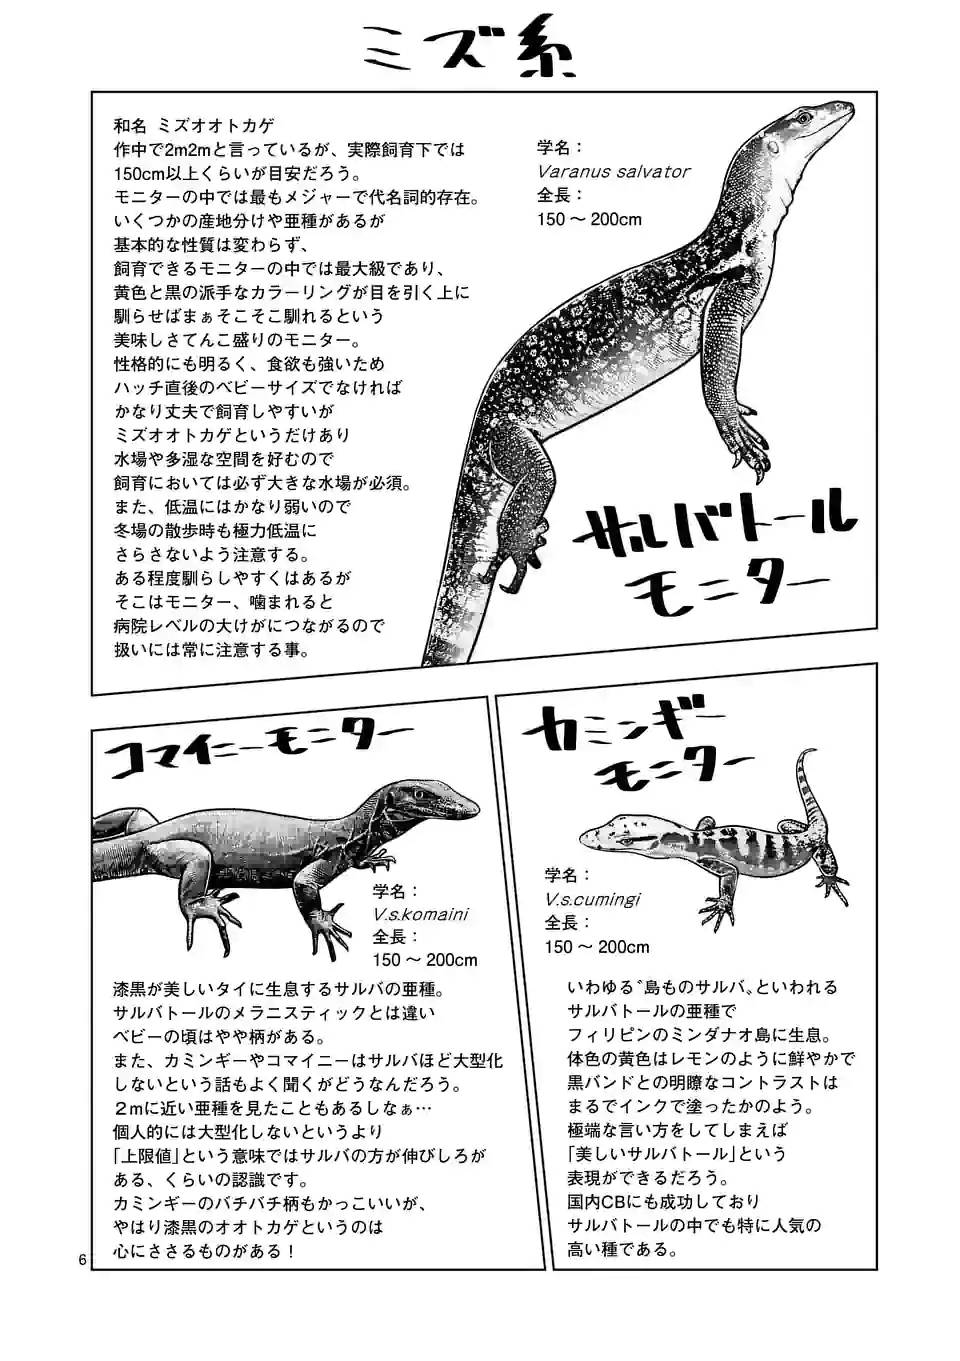 ミズ系
和名 ミズオオトカゲ
作中で2m2mと言っているが、実際飼育下では
150cm以上くらいが目安だろう。
モニターの中では最もメジャーで代名詞的存在。
いくつかの産地分けや亜種があるが
基本的な性質は変わらず、
飼育できるモニターの中では最大級であり、
黄色と黒の派手なカラーリングが目を引く上に
馴らせばまぁそこそこ馴れるという
美味しさてんこ盛りのモニター。
性格的にも明るく、食欲も強いため
ハッチ直後のベビーサイズでなければ
かなり丈夫で飼育しやすいが
ミズオオトカゲというだけあり
水場や多湿な空間を好むので
飼育においては必ず大きな水場が必須。
また、低温にはかなり弱いので
冬場の散歩時も極力低温に
さらさないよう注意する。
ある程度馴らしやすくはあるが
そこはモニター、噛まれると
病院レベルの大けがにつながるので
扱いには常に注意する事。
学名：
Varanus salvator
全長：
150 ～ 200cm
サルバトール
モニター
コマイニーモニター
学名：
V.s.komaini
全長：
150 ～ 200cm
漆黒が美しいタイに生息するサルバの亜種。
サルバトールのメラニスティックとは違い
ベビーの頃はやや柄がある。
また、カミンギーやコマイニーはサルバほど大型化
しないという話もよく聞くがどうなんだろう。
２mに近い亜種を見たこともあるしなぁ…
個人的には大型化しないというより
「上限値」という意味ではサルバの方が伸びしろが
ある、くらいの認識です。
カミンギーのバチバチ柄もかっこいいが、
やはり漆黒のオオトカゲというのは
心にささるものがある！
カミンギー
モニター
学名：
V.s.cumingi
全長：
150 ～ 200cm
いわゆる〝島ものサルバ〟といわれる
サルバトールの亜種で
フィリピンのミンダナオ島に生息。
体色の黄色はレモンのように鮮やかで
黒バンドとの明瞭なコントラストは
まるでインクで塗ったかのよう。
極端な言い方をしてしまえば
「美しいサルバトール」という
表現ができるだろう。
国内CBにも成功しており
サルバトールの中でも特に人気の
高い種である。
6